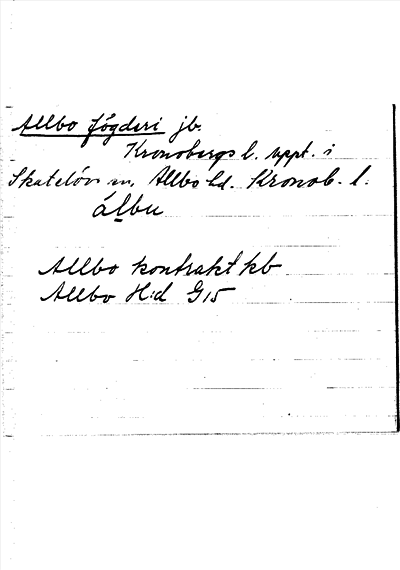 Allbo fögderi jb.
Kronobergs l. uppt. i
Skatelövs sn, Allbo hd. Kronob. l.
álbu
Allbo kontrakt kb
Allbo H:d G15